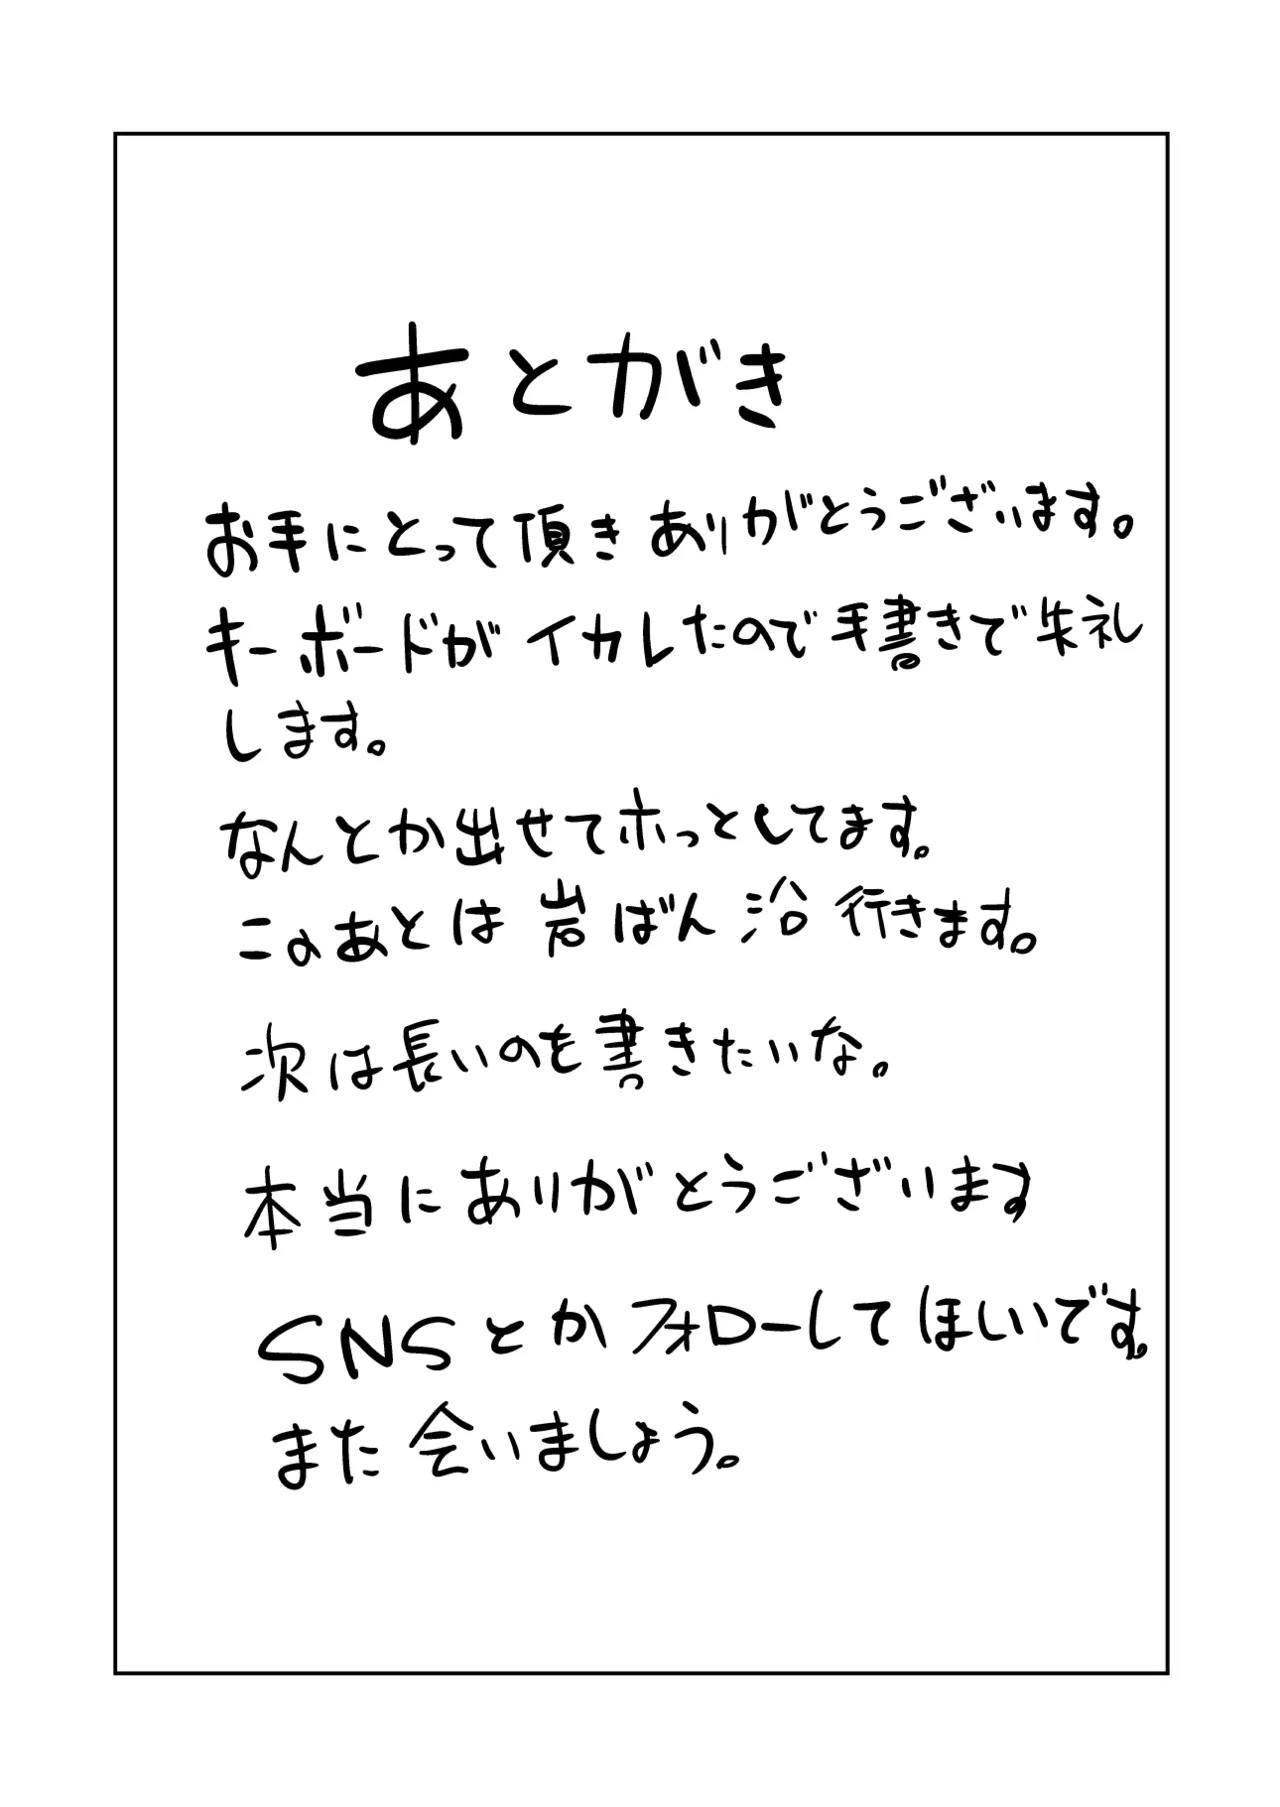 あとがき
お手にとって頂きありがとうございます。
キーボードがイカレたので手書きで失礼
します。
なんとか出せてホっとしてます。
このあとは岩ばん沿行きます。
次は長いのを書きたいな。
本当にありがとうございます
SNSとかフォローしてほしいです。
また会いましょう。